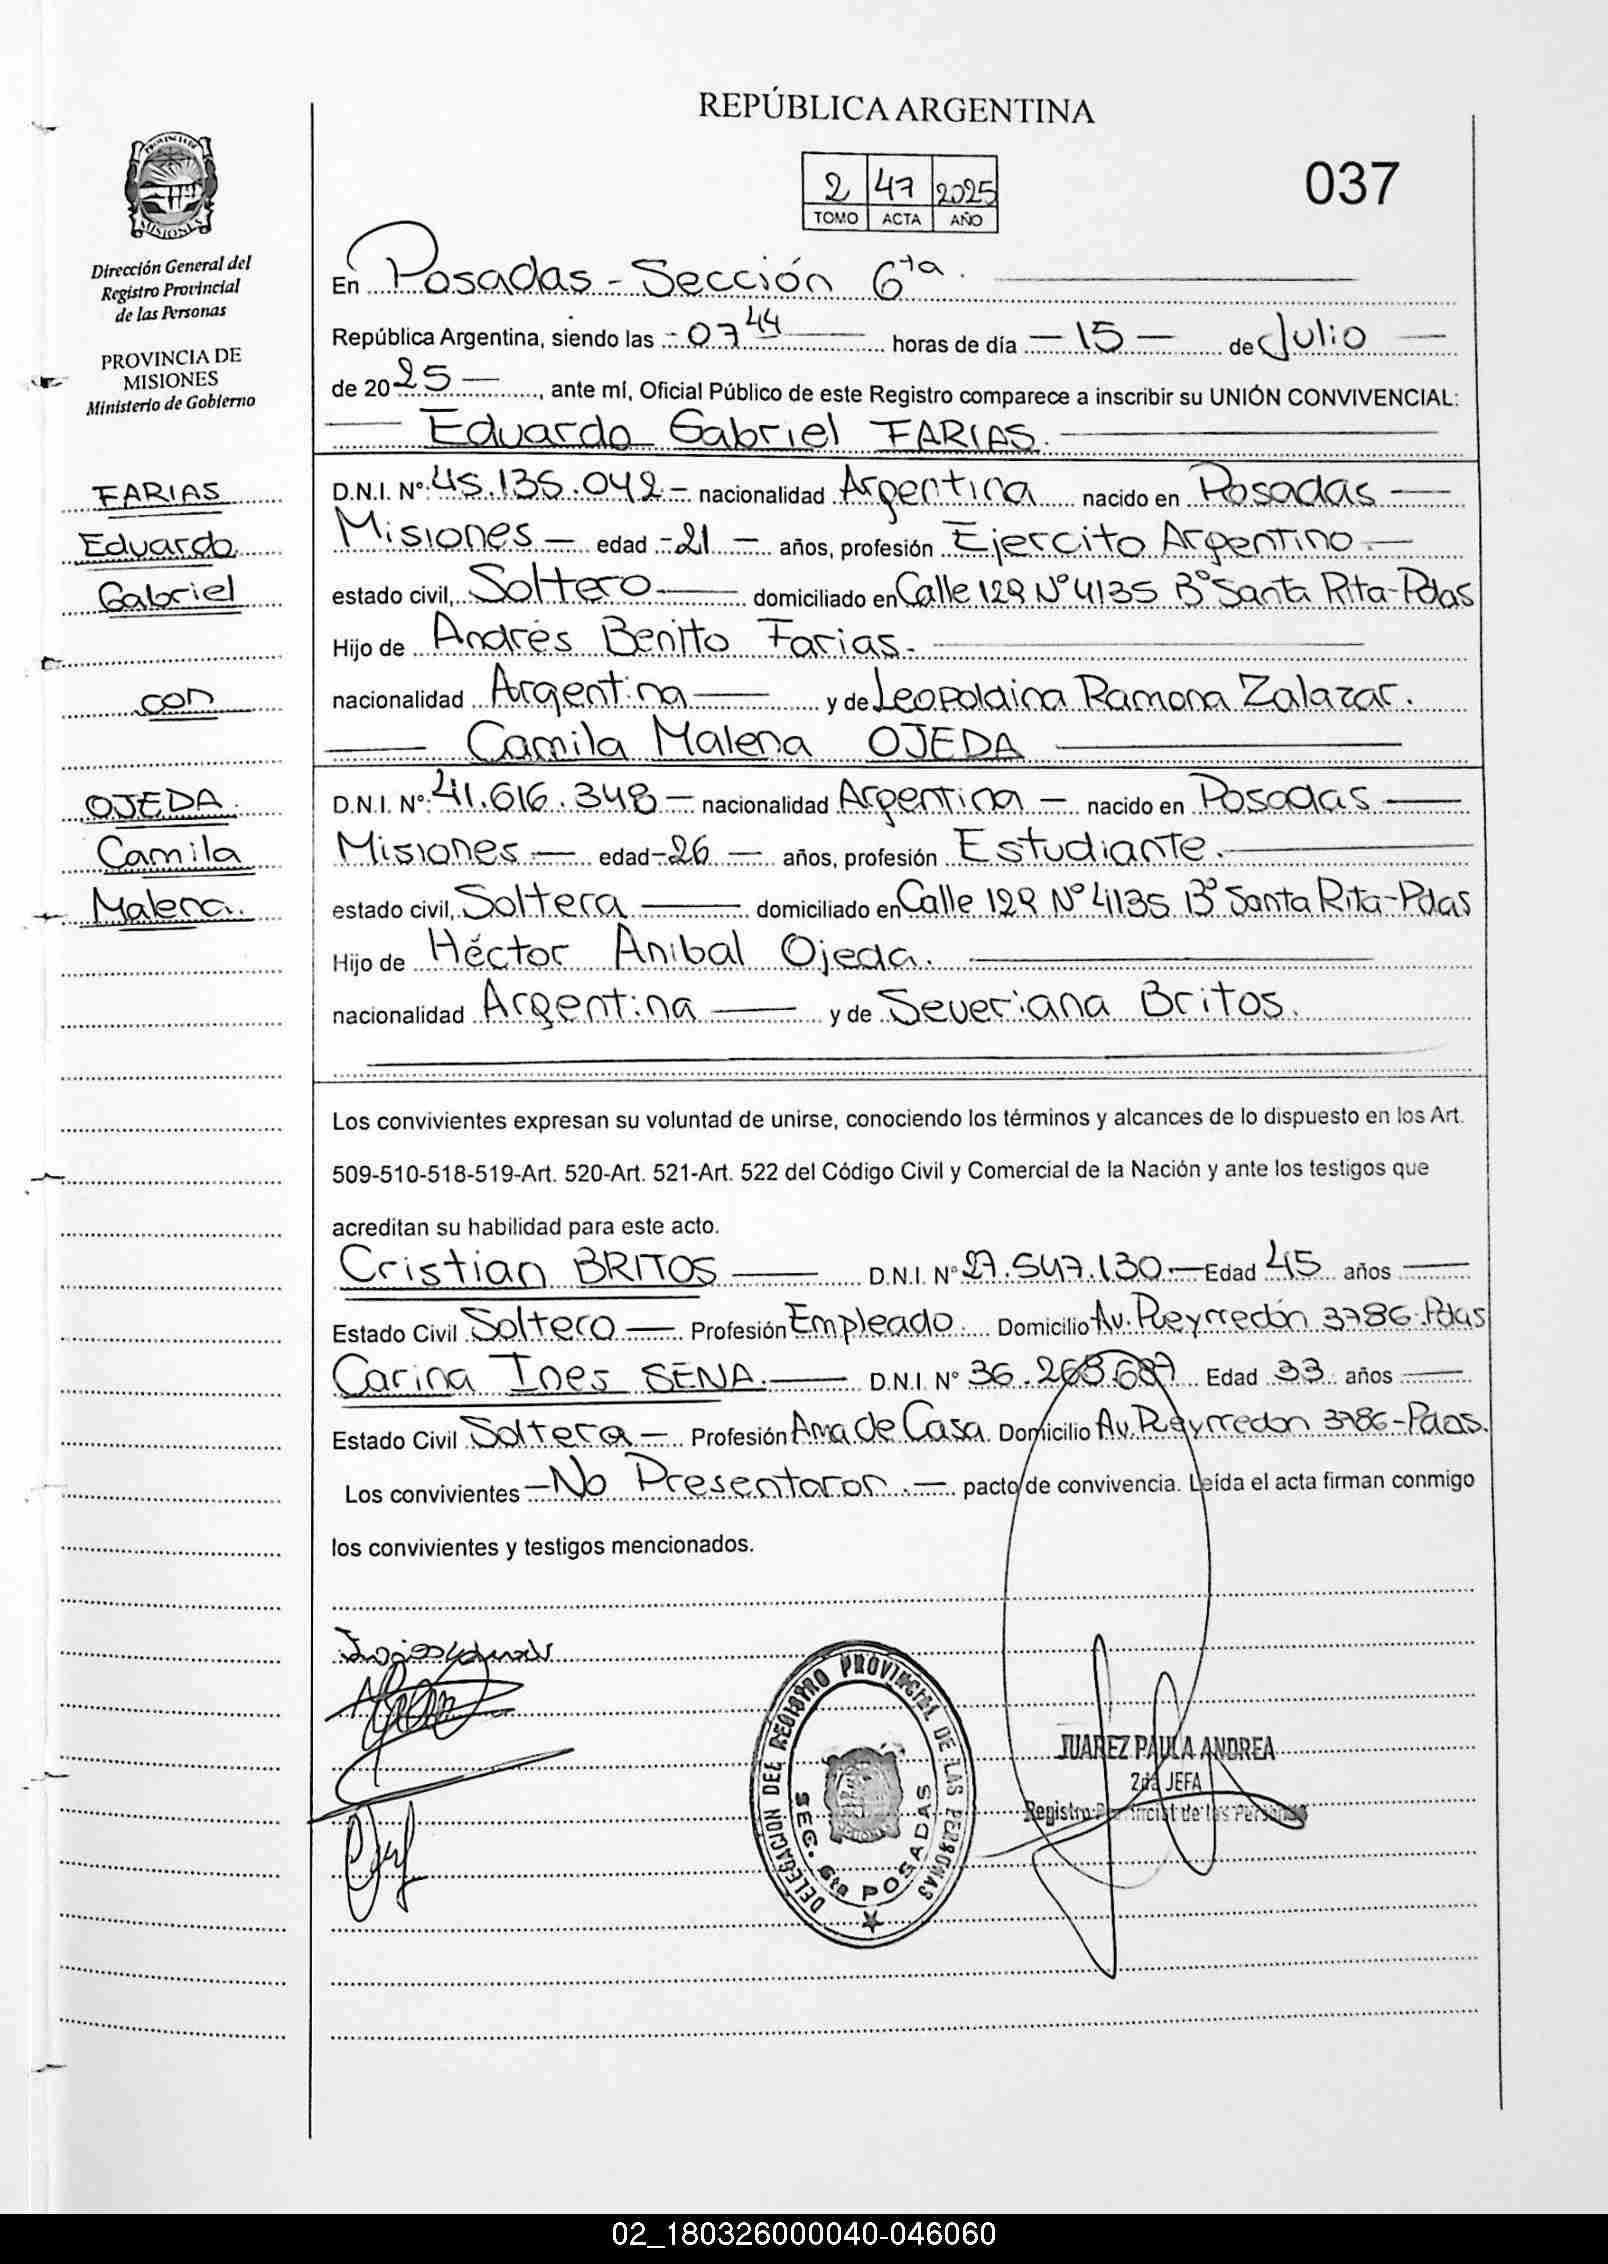 REPÚBLICA ARGENTINA
2 47 2025
TOMO ACTA AÑO
037
PROVINCIA DE MISIONES
Dirección General del
Registro Provincial
de las Personas
PROVINCIA DE
MISIONES
Ministerio de Gobierno
FARIAS
Eduardo
Gabriel
con
OJEDA
Camila
Malena.
En Posadas - Sección 6ta.
República Argentina, siendo las - 07 44 horas de día - 15 - de Julio
de 20 25 -, ante mí, Oficial Público de este Registro comparece a inscribir su UNIÓN CONVIVENCIAL:
Eduardo Gabriel FARIAS.
D.N.I. Nº: 45.135.042 - nacionalidad Argentina nacido en Posadas -
Misiones - edad - 21 - años, profesión Ejercito Argentino. -
estado civil, Soltero - domiciliado en Calle 129 Nº 4135 Bº Santa Rita-Pdas
Hijo de Andrés Benito Farias.
nacionalidad Argentina - y de Leopoldina Ramona Zalazar.
Camila Malena OJEDA
D.N.I. Nº: 41.616.348 - nacionalidad Argentina - nacido en Posadas -
Misiones - edad - 26 - años, profesión Estudiante.
estado civil, Soltera - domiciliado en Calle 129 Nº 4135 Bº Santa Rita-Pdas
Hijo de Héctor Anibal Ojeda.
nacionalidad Argentina - y de Severiana Britos.
Los convivientes expresan su voluntad de unirse, conociendo los términos y alcances de lo dispuesto en los Art.
509-510-518-519-Art. 520-Art. 521-Art. 522 del Código Civil y Comercial de la Nación y ante los testigos que
acreditan su habilidad para este acto.
Cristian BRITOS - D.N.I. Nº 27.547.130 - Edad 45 años -
Estado Civil Soltero - Profesión Empleado. Domicilio Av. Pueyrredón 3786-Pdas
Carina Ines SENA. - D.N.I. Nº 36.268.687 Edad 33 años -
Estado Civil Soltera - Profesión Ama de Casa. Domicilio Av. Pueyrredon 3786-Pdas.
Los convivientes - No Presentaron. - pacto de convivencia. Leída el acta firman conmigo
los convivientes y testigos mencionados.
DELEGACION DEL REGISTRO PROVINCIAL DE LAS PERSONAS
SEC. 6ta POSADAS
JUAREZ PAULA ANDREA
2da JEFA
Registro Provincial de las Personas
02_180326000040-046060